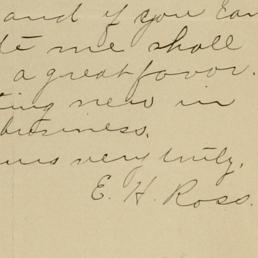 and if you can
me shall
a great favor.
new in
business.
very truly,
E. H. Ross.